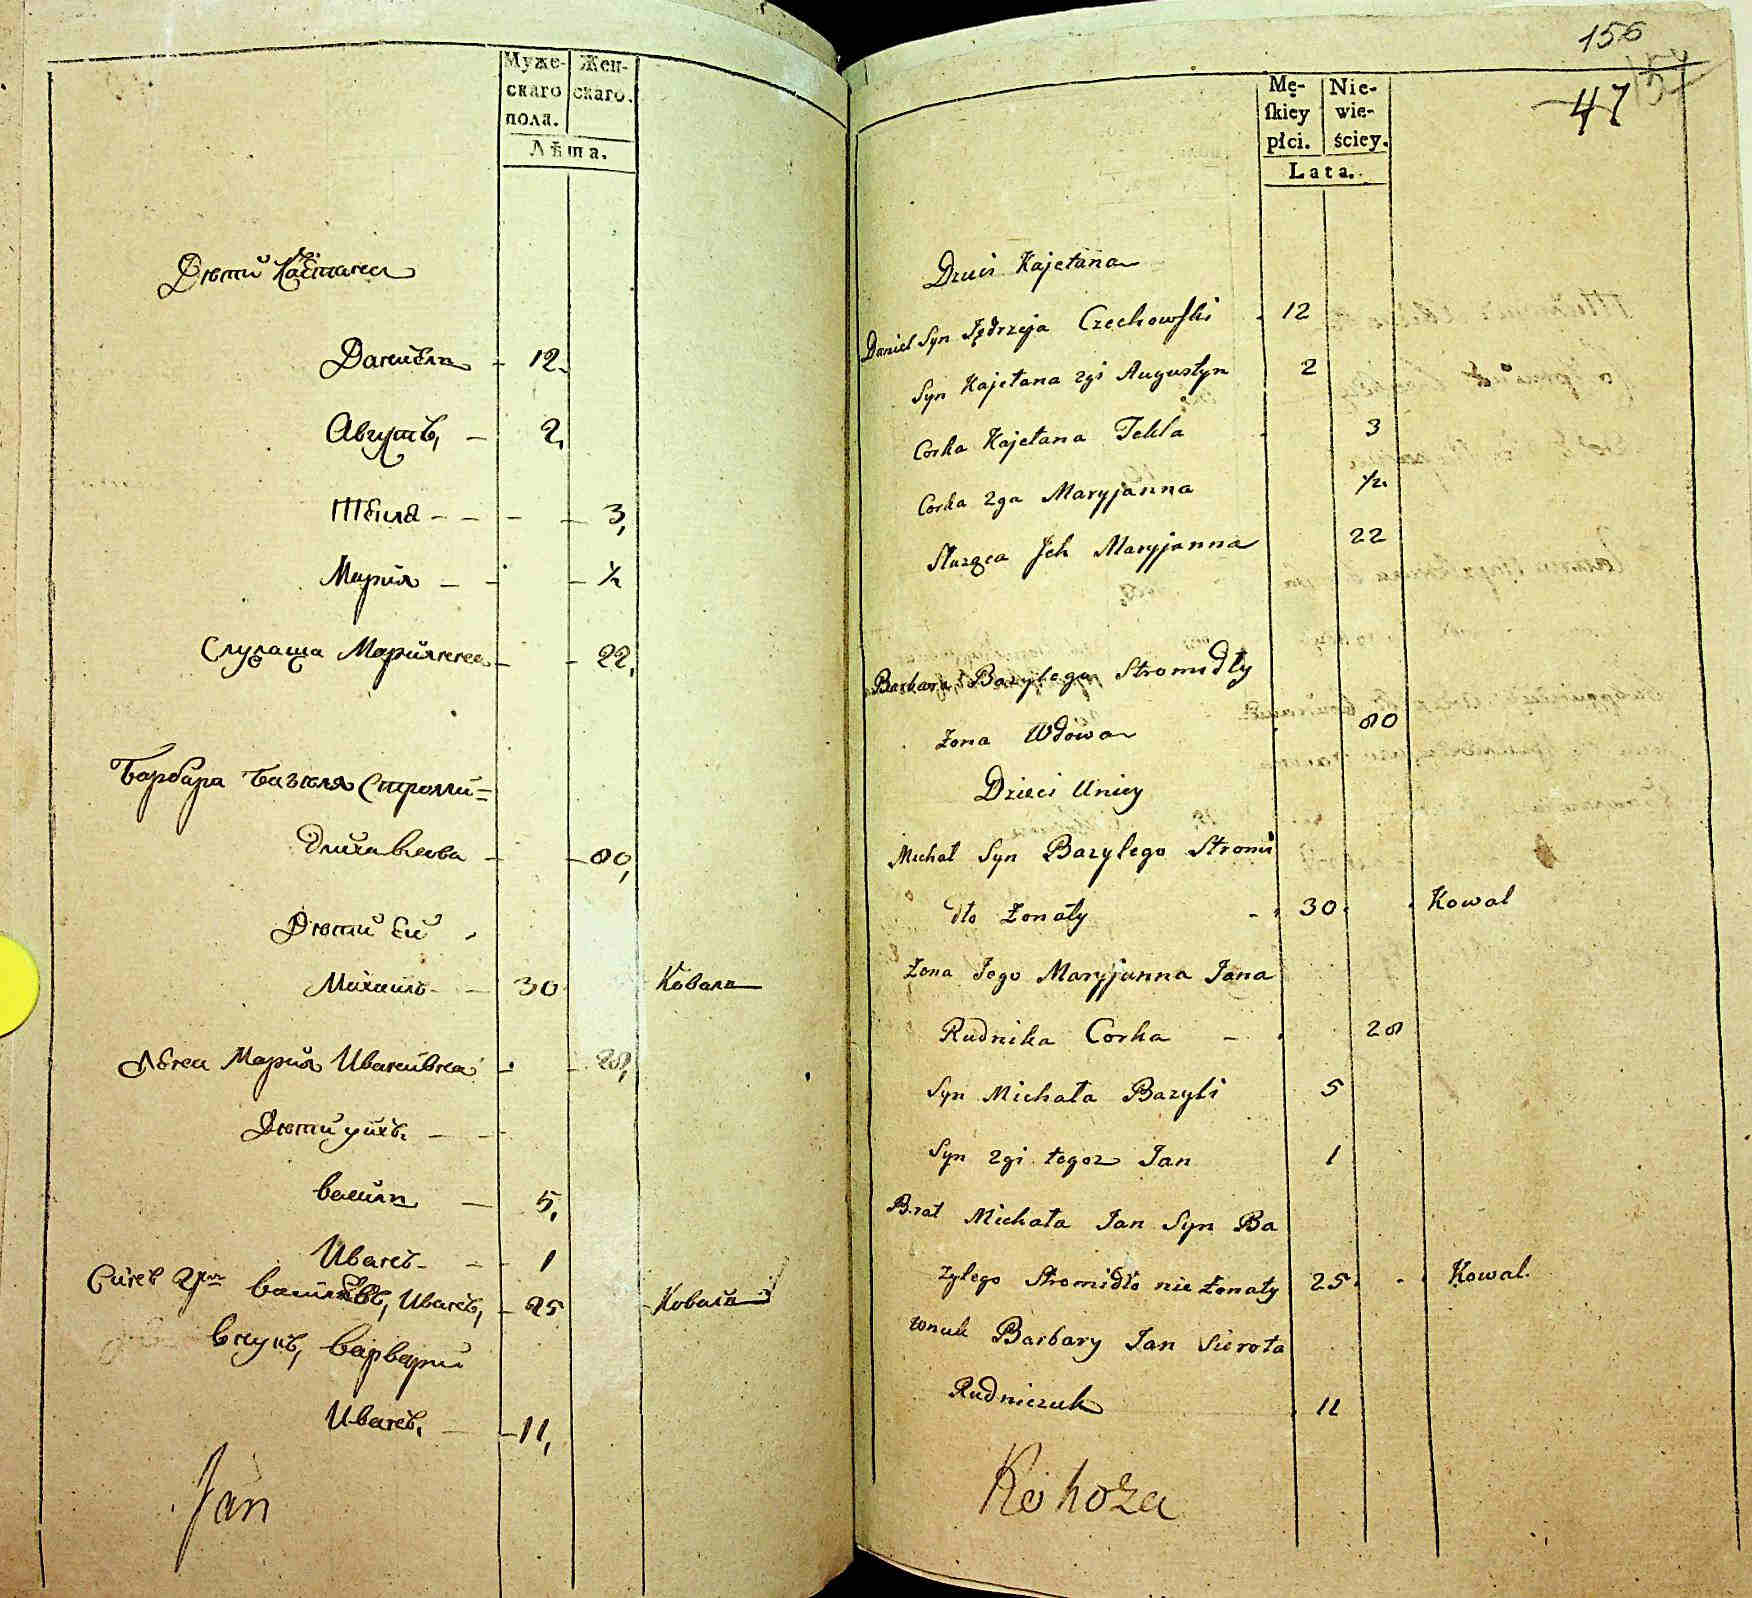 Муже-
скаго
пола.
Жен-
скаго.
Лѣта.
Дѣти Каетана
Даніель - 12.
Августъ, - 2,
Текля - - - - 3,
Марія - - - ½
Служаща Маріянна - - 22,
Барбара Базиля Строми=
длиха вдова - - 80,
Дѣти ей
Михаилъ - 30 Коваль
Жена Марія Ивановна - - 28,
Дѣти ихъ - -
Василь - 5,
Иванъ - - 1
Сынъ 2й Васильевъ, Иванъ, - 25 Коваль
Внукъ, Варвары
Иванъ, - 11,
Jan
156
47
Mę-
ſkiey
płci.
Nie-
wie-
ściey.
Lata.
Dzieci Kajetana
Daniel Syn Jędrzeja Czechowſki 12
Syn Kajetana 2gi Augustyn 2
Corka Kajetana Tekla 3
Corka 2ga Maryjanna ½
Służąca Jch Maryjanna 22
Barbara Bazylego Stromidły
Żona Wdowa 80
Dzieci Uniey
Michał Syn Bazylego Stromi
dło Żonaty - 30 Kowal
Żona Jego Maryjanna Jana
Rudnika Corka - 28
Syn Michała Bazyli 5
Syn 2gi tegoz Jan 1
Brat Michała Jan Syn Ba
zylego Stromidło nie żonaty 25 Kowal.
wnuk Barbary Jan Sierota
Rudniczuk 11
Rohoza